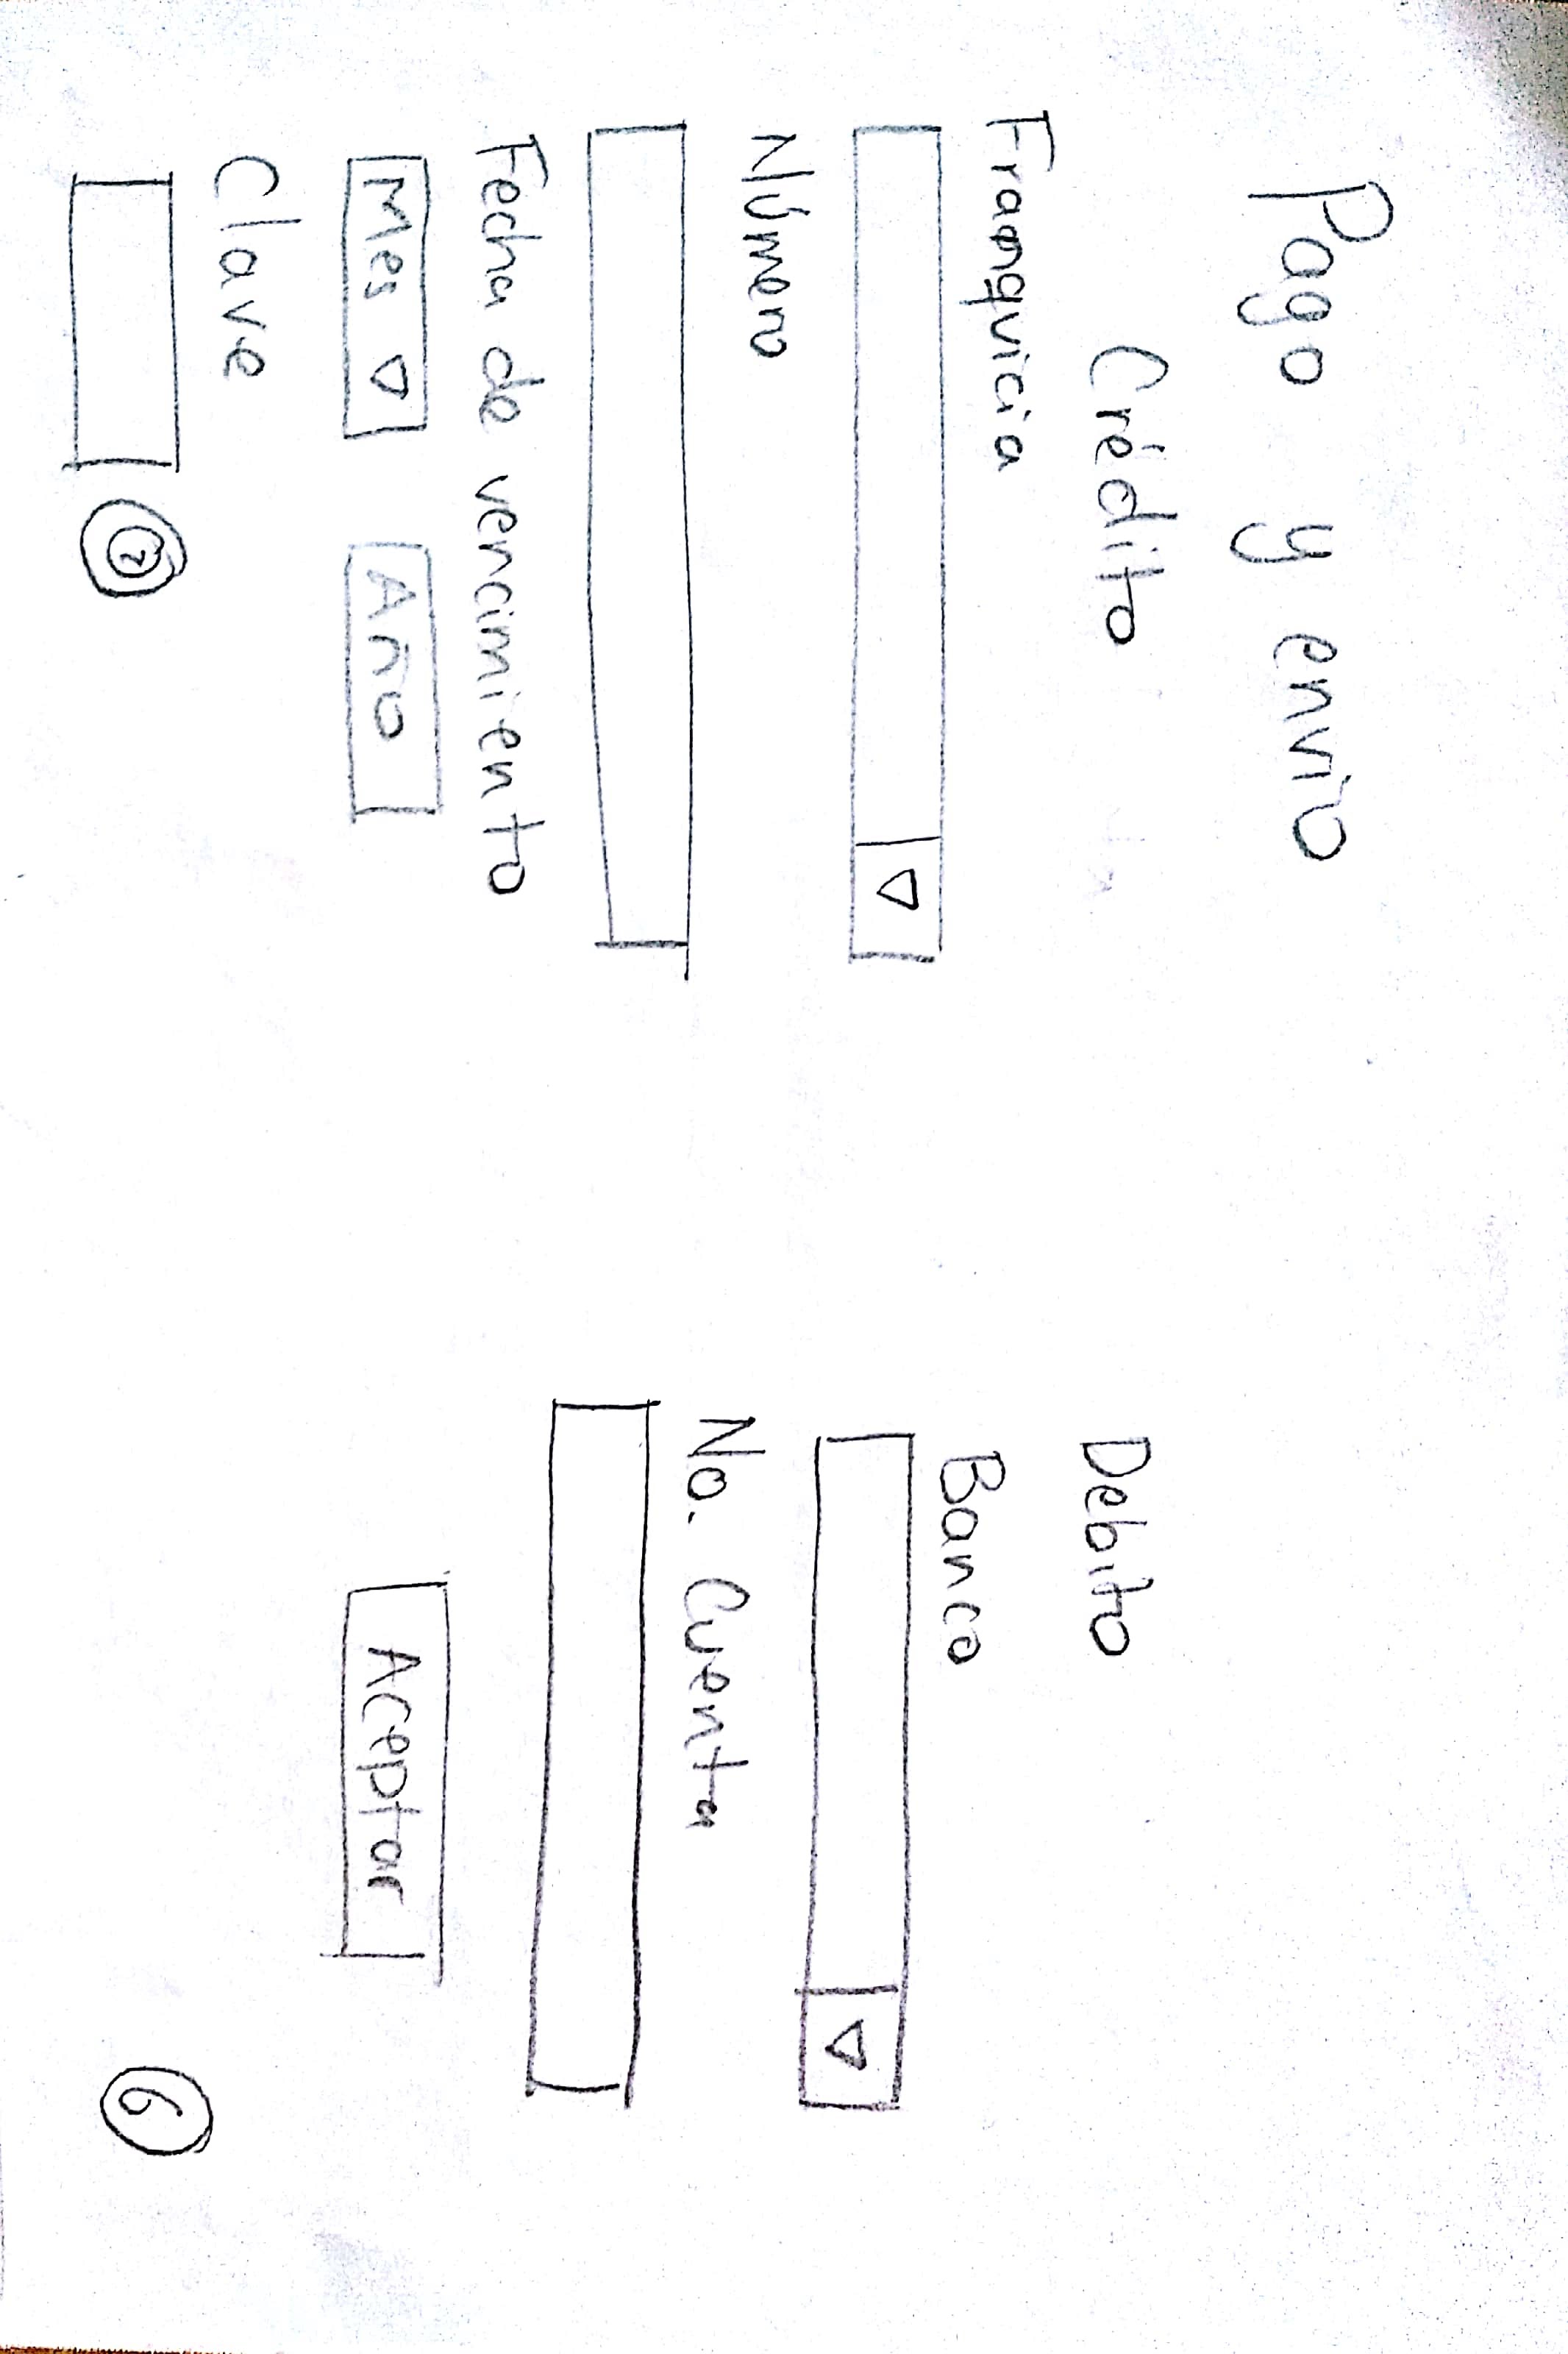 Pago y envio
Crédito
Franquicia
Número
Fecha de vencimiento
Mes Año
Clave
?
Debito
Banco
No. Cuenta
Aceptar
6